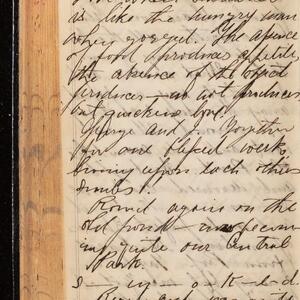 is like the hungry man
when gorged. The absence
of food produces appetite,
the absence of the object
produces — no not produces
but quickens love.
George and I together
for one blessed week,
living upon each other's
smiles!
Round again on the
old pond —
ing quite our Central
Park.